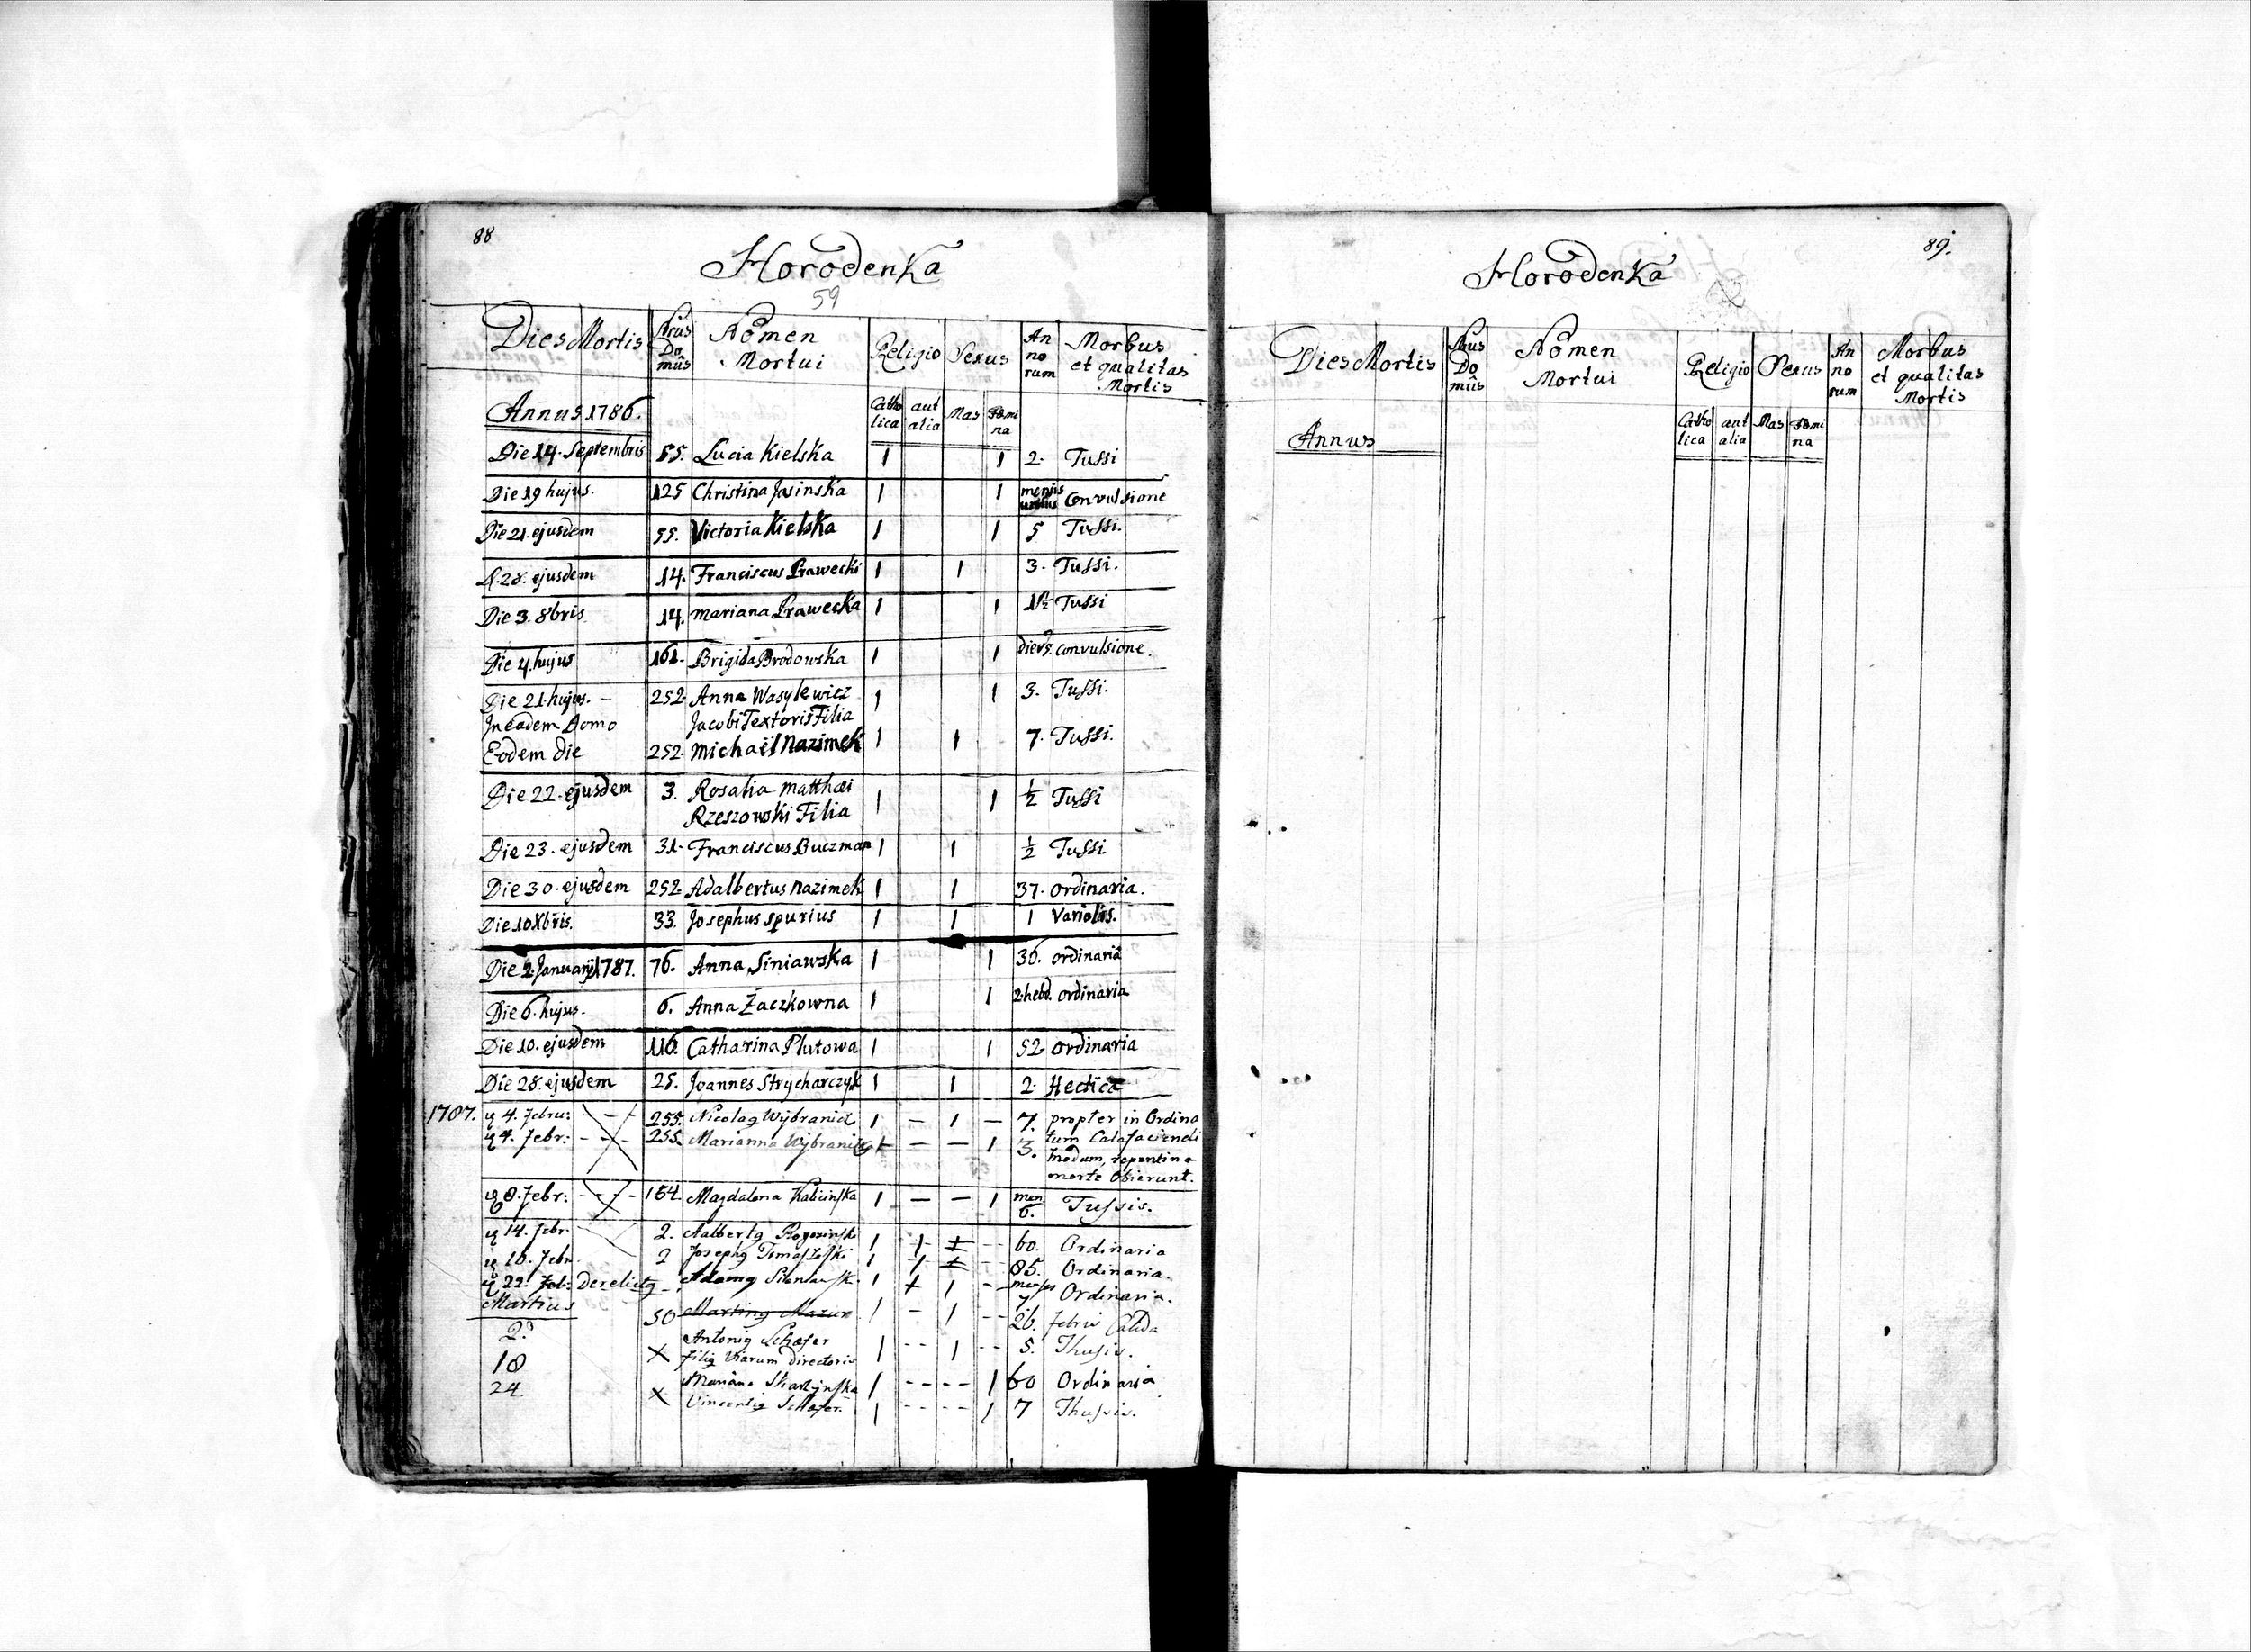 88
Horodenka
59
Dies Mortis Nrus Domûs Nomen Mortui Religio Sexus Annorum Morbus et qualitas Mortis
Annus 1786. Catholica aut alia Mas Femina
Die 14. Septembris 55. Lucia Kielska 1 1 2. Tussi
Die 19 hujus. 125 Christina Jasinska 1 1 mensis unius Convulsione
Die 21. ejusdem 55. Victoria Kielska 1 1 5 Tussi.
d. 28. ejusdem 14. Franciscus Prawecki 1 1 3. Tussi.
Die 3. 8bris 14. Mariana Prawecka 1 1 1½ Tussi
Die 4. hujus 161. Brigida Brodowska 1 1 convulsione.
Die 21. hujus. - 252. Anna Wasylewicz 1 1 3. Tussi.
In eadem Domo Jacobi Textoris Filia
Eodem die 252. Michaël Nazimek 1 1 7. Tussi.
Die 22. ejusdem 3. Rosalia Matthæi 1 1 ½ Tussi
Rzeszowski Filia
Die 23. ejusdem 31. Franciscus Buczman 1 1 ½ Tussi
Die 30. ejusdem 252. Adalbertus Nazimek 1 1 37. ordinaria.
Die 10 Xbris. 33. Josephus spurius 1 1 1 Variolis.
Die 2 Januarij 1787. 76. Anna Siniawska 1 1 36. ordinaria
Die 6. hujus. 6. Anna Żaczkowna 1 1 2. hebd. ordinaria
Die 10. ejusdem 116. Catharina Plutowa 1 1 52. ordinaria
Die 28. ejusdem 25. Joannes Strycharczyk 1 1 2. Hectica
1787. 4. Febru: 255. Nicolaq Wÿbranid 1 - 1 - 7. propter in Ordina
4. Febr: 255. Marianna - - 1 3. tum Calafaciendi
modum, repentina
morte Obierunt.
8. Febr: 164. Magdalena Kalicinska 1 - - 1 men 6. Tussis.
14. Febr 2. 60. Ordinaria
Febr. 2 85. Ordinaria.
22. Feb: Derelictq 1 + 1 - Ordinaria.
Martius 50 Martinq Mazur 1 - 1 - 26. Febris Calida
2. Antoniq Schafer
X filiq Viarum Directoris 1 - - 1 - - 5. Thusis.
18 1 - - - - 1 60 Ordinaria
24. X Vincentiq Schafer. 1 - - - - 1 7 Thussis.
89.
Horodenka
Dies Mortis Nrus Domûs Nomen Mortui Religio Sexus Annorum Morbus et qualitas Mortis
Annus Catholica aut alia Mas Femina